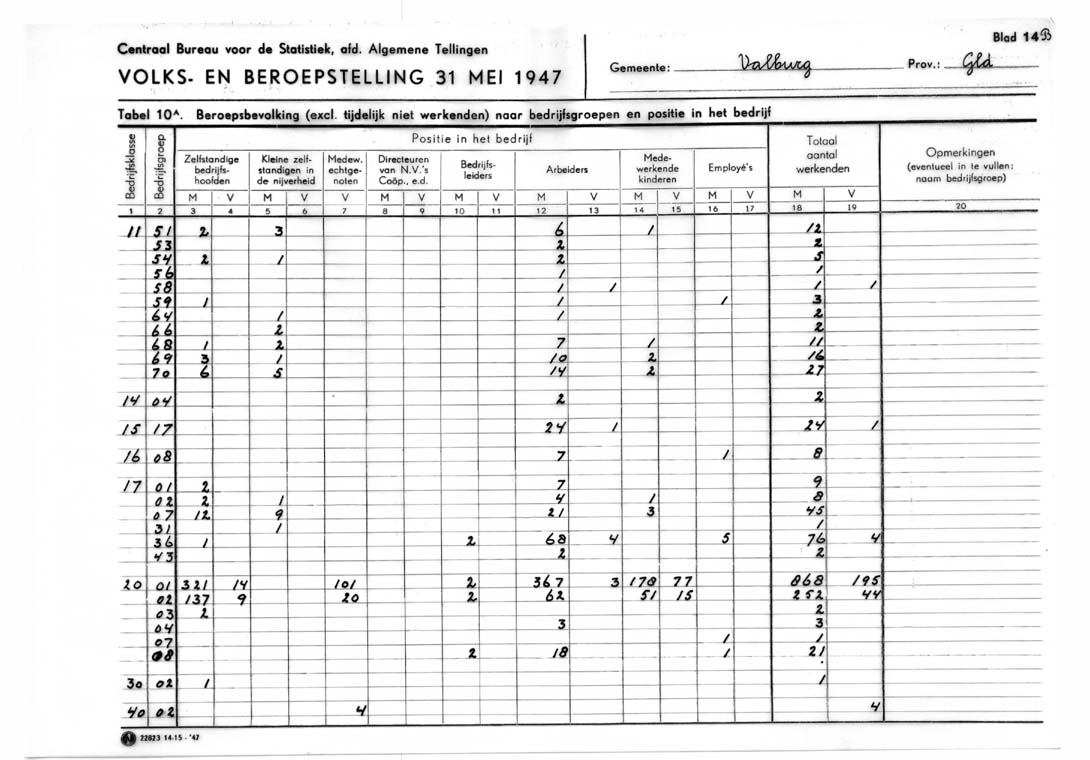 Blad 14B
Centraal Bureau voor de Statistiek, afd. Algemene Tellingen
VOLKS- EN BEROEPSTELLING 31 MEI 1947
Gemeente: Valburg Prov.: Gld
Tabel 10A. Beroepsbevolking (excl. tijdelijk niet werkenden) naar bedrijfsgroepen en positie in het bedrijf
Bedrijfsklasse Bedrijfsgroep Positie in het bedrijf Totaal aantal werkenden Opmerkingen (eventueel in te vullen: naam bedrijfsgroep)
Zelfstandige bedrijfshoofden Kleine zelfstandigen in de nijverheid Medew. echtgenoten Directeuren van N.V.'s Coöp., e.d. Bedrijfsleiders Arbeiders Medewerkende kinderen Employé's
M V M V V M V M V M V M V M V M V
1 2 3 4 5 6 7 8 9 10 11 12 13 14 15 16 17 18 19 20
11 51 2 3 6 1 12
53 2 2
54 2 1 2 5
56 1 1
58 1 1 1 1
59 1 1 1 3
64 1 1 2
66 2 2
68 1 2 7 1 11
69 3 1 10 2 16
70 6 5 14 2 27
14 04 2 2
15 17 24 1 24 1
16 08 7 1 8
17 01 2 7 9
02 2 1 4 1 8
07 12 9 21 3 45
31 1 1
36 1 2 68 4 5 76 4
43 2 2
20 01 321 14 101 2 367 3 178 77 868 195
02 137 9 20 2 62 51 15 252 44
03 2 2
04 3 3
07 1 1
08 2 18 1 21
30 02 1 1
40 02 4 4
22823 14-15 - '47